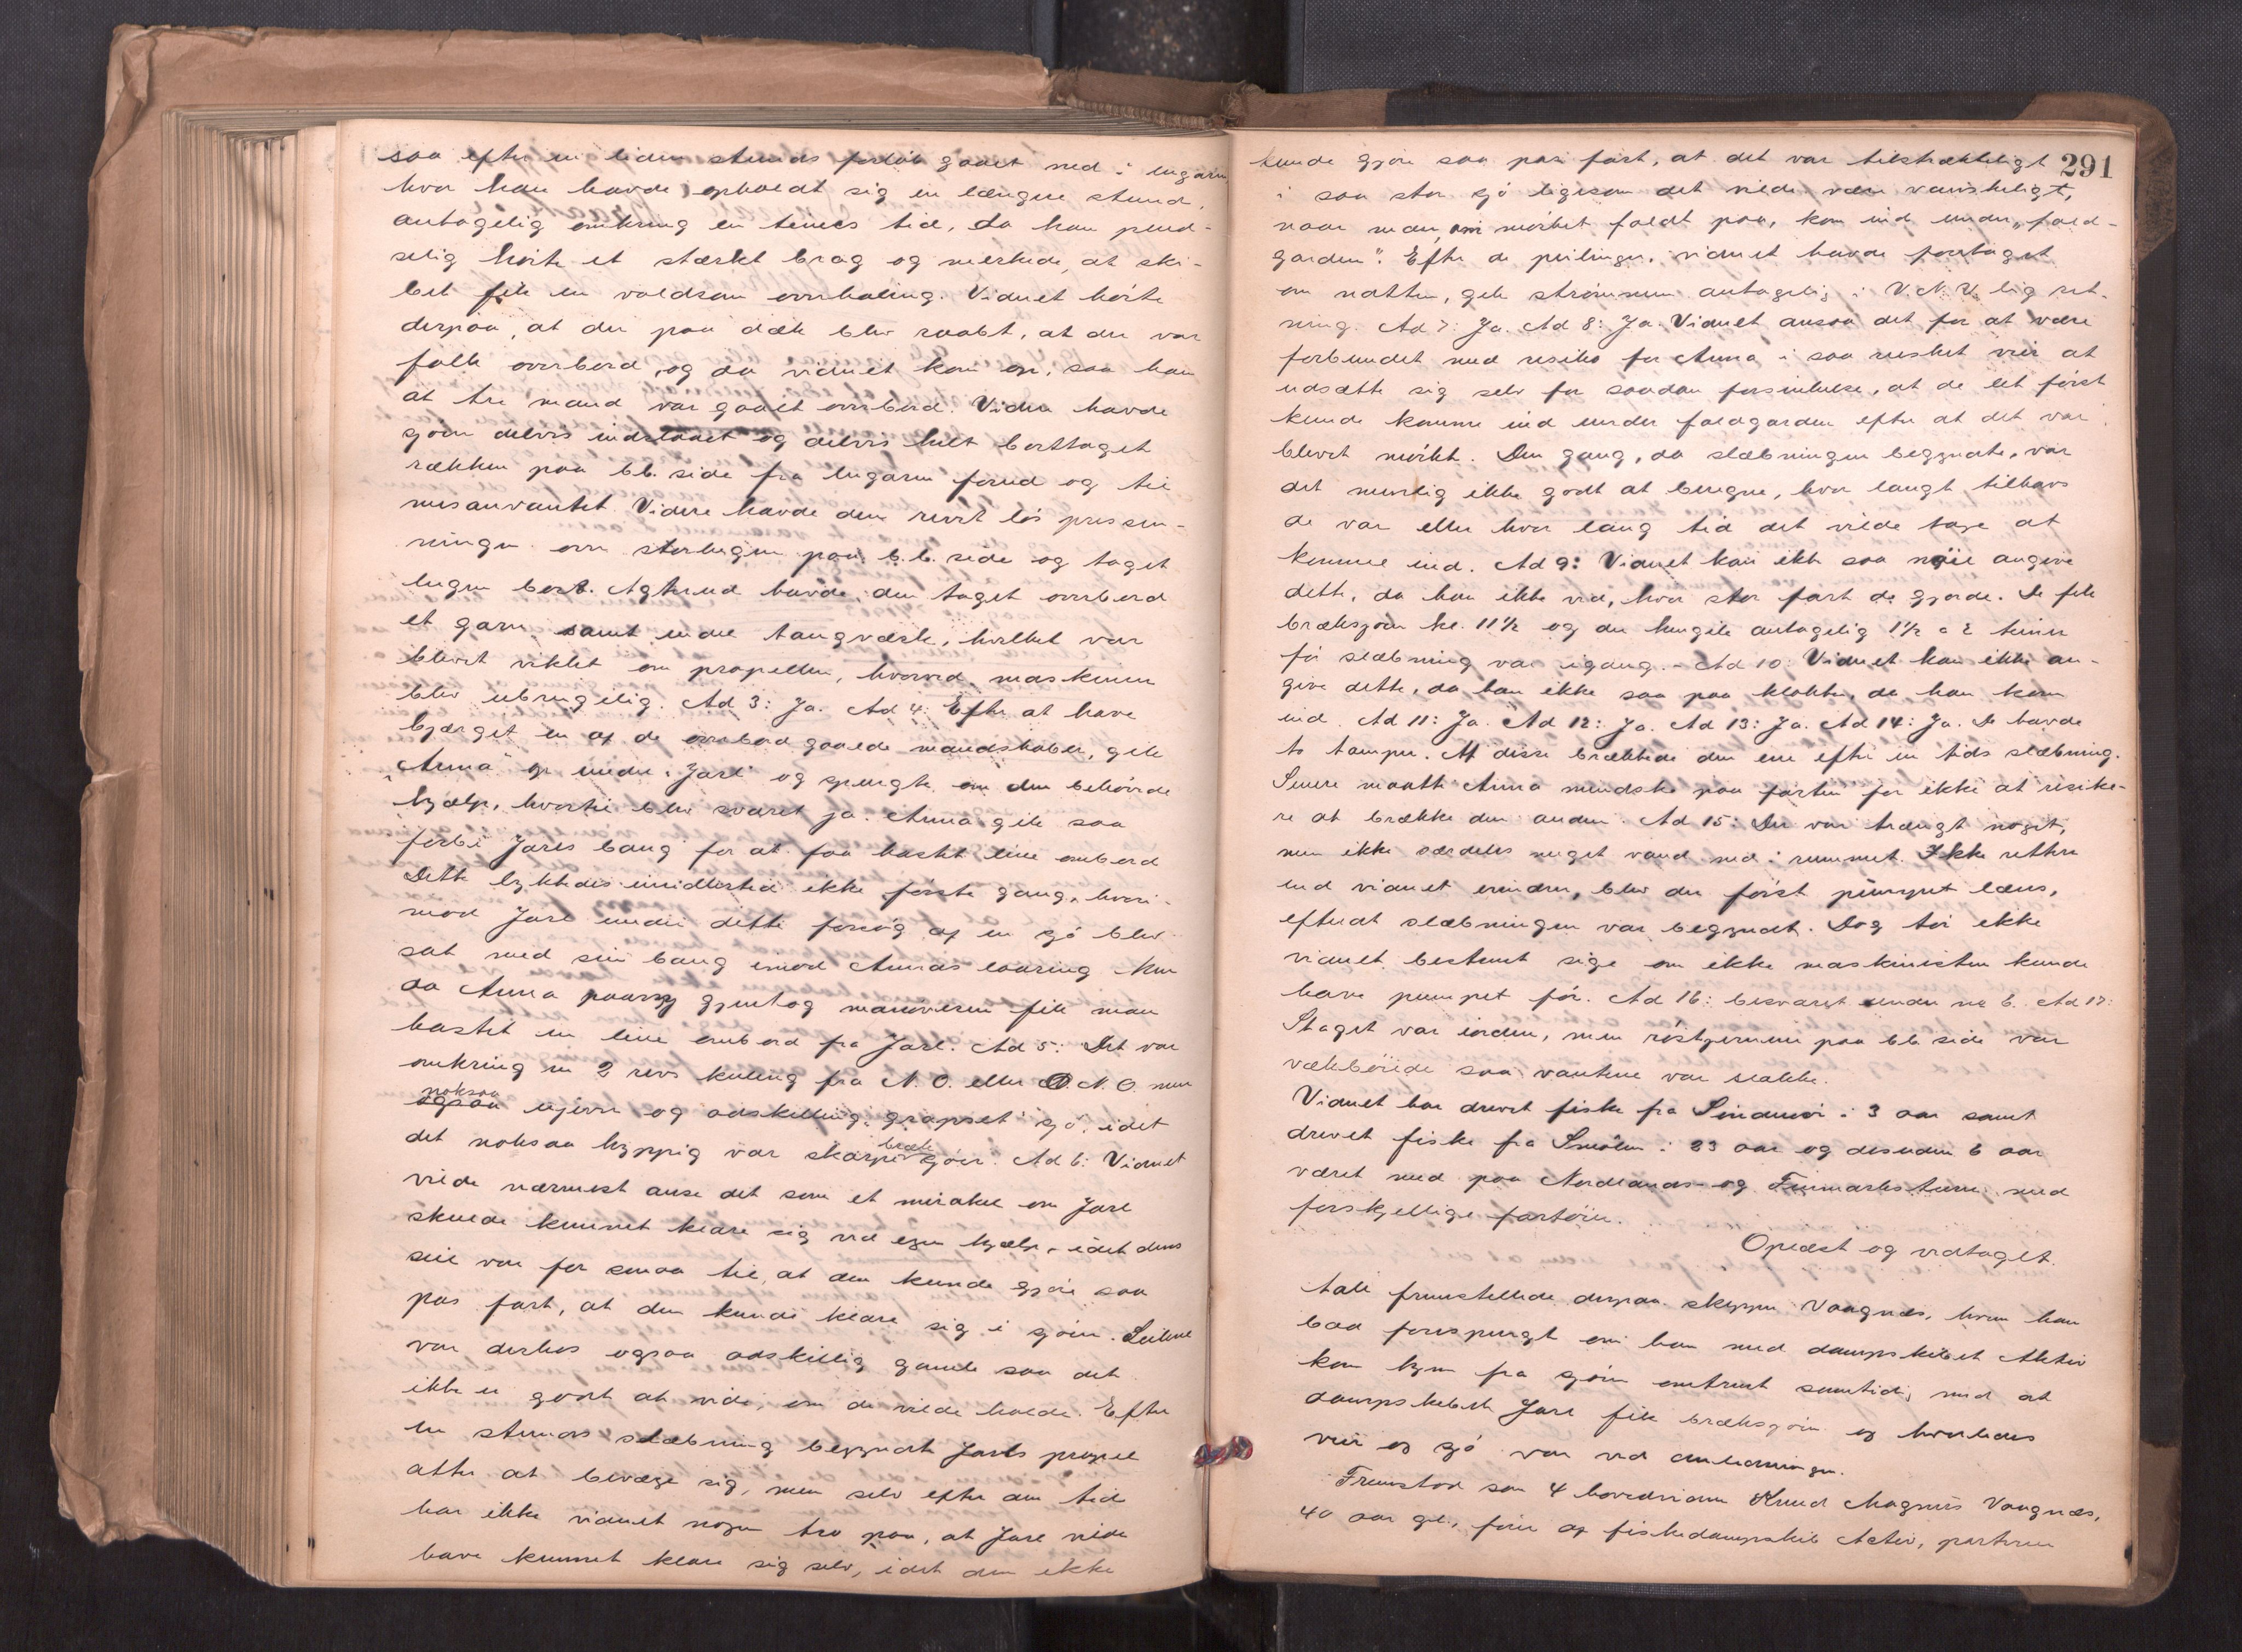 saa efter en liden stunds forløb gaaet ned i lugaren,
hvor han havde opholdt sig en længere stund,
antagelig omkring en times tid, da han plud-
selig hørte et stærkt brag og merkede, at ski-
bet fik en voldsom overhaling. Vidnet hørte
derpaa, at der paa dæk blev raabt, at der var
folk overbord, og da vidnet kom op, saa han
at tre mand var gaaet overbord. Videre havde
sjøen delvis indslaaet og delvis helt borttaget
rækken paa bb. side fra lugaren forud og til
mesanvantet. Videre havde den revet løs presen-
ningen over storlugen paa b.b. side og taget
lugen bort. Agterud havde den taget overbord
et garn samt endel taugværk, hvilket var
blevet viklet om propellen, hvorved maskinen
blev ubrugelig. Ad 3: Ja. Ad 4: Efter at have
bjærget en af de overbord gaaede mandskaber, gik
"Anna" op under "Jarl" og spurgte om den behøvede
hjælp, hvortil blev svaret ja. Anna gik saa
forbi Jarls baug for at faa kastet line ombord
Dette lykkedes imidlertid ikke første gang, hvori-
mod Jarl under dette forsøg af en sjø blev
sat med sin baug imod Annas laaring. Men
da Anna paany gjentog manøveren fik man
kastet en line ombord fra Jarl. Ad 5: Det var
omkring en 2 revs kuling fra N.O. eller O.N.O. men
noksaa
ogsaa ujevn og adskillig "grapset" sjø, idet
bræk
det noksaa hyppig var skarpe sjøer. Ad 6: Vidnet
vilde nærmest anse det som et mirakel om Jarl
skulde kunnet klare sig ved egen hjælp, idet dens
seil var for smaa til, at den kunde gjøre saa
pas fart, at den kunde klare sig i sjøen. Seilene
var derhos ogsaa adskillig gamle saa det
ikke er godt at vide, om de vilde holde. Efter
en stunds slæbning begyndte Jarls propel
atter at bevæge sig, men selv efter den tid
har ikke vidnet nogen tro paa, at Jarl vilde
have kunnet klare sig selv, idet den ikke
291
kunde gjøre saa pas fart, at det var tilstrækkeligt
i saa stor sjø ligesom det vilde være vanskeligt,
naar man, om mørket faldt paa, kom ind under "fald-
garden". Efter de peilinger, vidnet havde foretaget
om natten, gik strømmen antagelig i V.N.V. lig ret-
ning. Ad 7: Ja. Ad 8: Ja. Vidnet ansaa det for at være
forbundet med risiko for Anna i saa rusket veir at
udsætte sig selv for saadan forsinkelse, at de let først
kunde komme ind under faldgarden efter at det var
blevet mørkt. Den gang, da slæbningen begyndte, var
det nemlig ikke godt at beregne, hvor langt tilhavs
de var eller hvor lang tid det vilde tage at
komme ind. Ad 9: Vidnet kan ikke saa nøie angive
dette, da han ikke ved, hvor stor fart de gjorde. De fik
bræksjøen kl. 11½ og der hengik antagelig 1½ a 2 timer
før slæbning var igang. - Ad 10: Vidnet kan ikke an-
give dette, da han ikke saa paa klokken, da han kom
ind. Ad 11: Ja. Ad 12: Ja. Ad 13: Ja. Ad 14: Ja. De havde
to tamper. Af disse brækkede den ene efter en tids slæbning.
Senere maatte Anna mindske paa farten for ikke at risike-
re at brække den anden. Ad 15: Der var trængt noget,
men ikke særdeles meget vand ned i rummet. Ikke rettere
end vidnet erindrer, blev der først pumpet læns,
efterat slæbningen var begyndt. Dog tør ikke
vidnet bestemt sige om ikke maskinisten kunde
have pumpet før. Ad 16: besvaret under no 6. Ad 17:
Staget var iorden, men røstjernene paa bb side var
vækbøiede saa vantene var slakke.
Vidnet har drevet fiske fra Sindmør i 3 aar samt
drevet fiske fra Smølen i 23 aar og desuden 6 aar
været med paa Nordlands- og Finmarksturene med
forskjellige fartøier.
Oplæst og vedtaget.
Tale fremstillede derpaa skipper Vaagnæs, hvem han
bad forespurgt om han med dampskibet Aktiv
kom hjem fra sjøen omtrent samtidig med at
dampskibet Jarl fik bræksjøen og hvorledes
veir og sjø var ved anledningen.
Fremstod som 4 hovedvidne Knud Magnus Vaagnæs,
40 aar gl., fører af fiskedampskib Activ, parterne